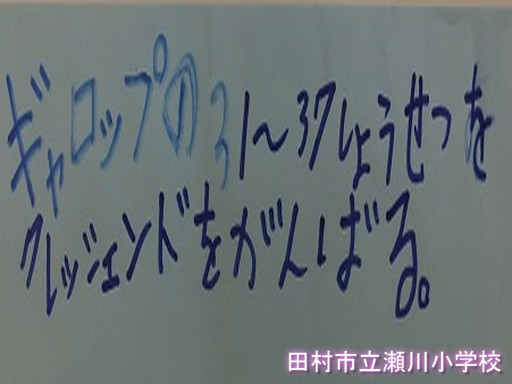 ギャロップの31～37しょうせつを
クレッシェンドをがんばる。
田村市立瀬川小学校